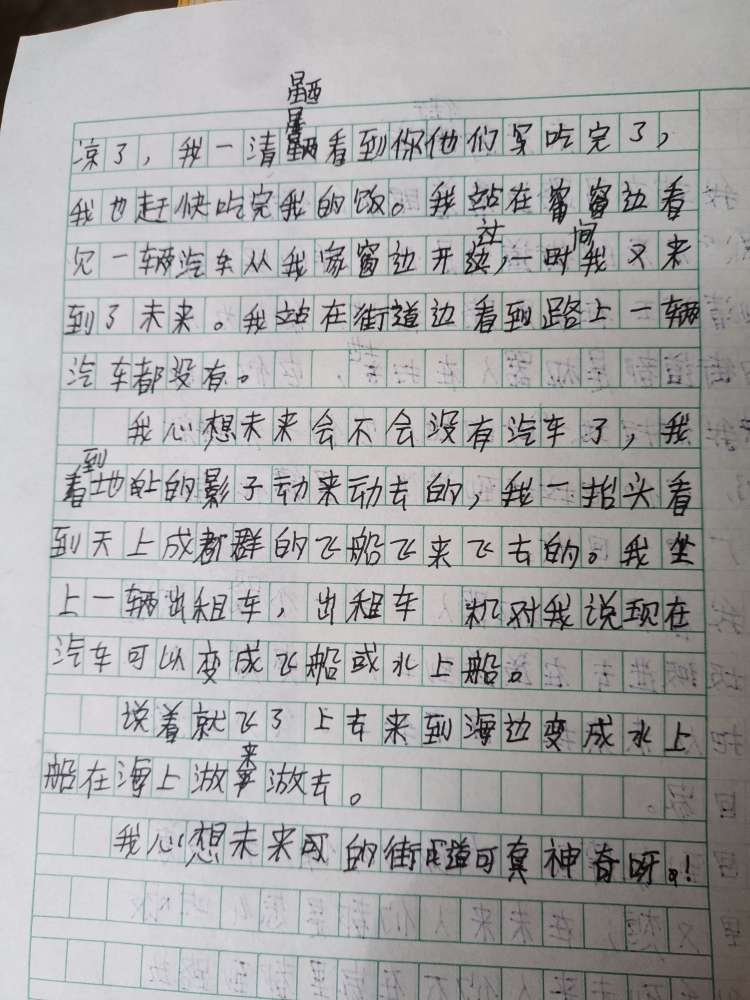 凉了，我一清醒看到你他们早吃完了，
我也赶快吃完我的饭。我站在窗窗边看
见一辆汽车从我家窗边开过，一时间我又来
到了未来。我站在街道边看到路上一辆
汽车都没有。
我心想未来会不会没有汽车了，我
看到地上的影子动来动去的，我一抬头看
到天上成群的飞船飞来飞去的。我坐
上一辆出租车，出租车 机对我说现在
汽车可以变成飞船或水上船。
说着就飞了上去来到海边变成水上
船在海上游来游去。
我心想未来的街道可真神奇呀！